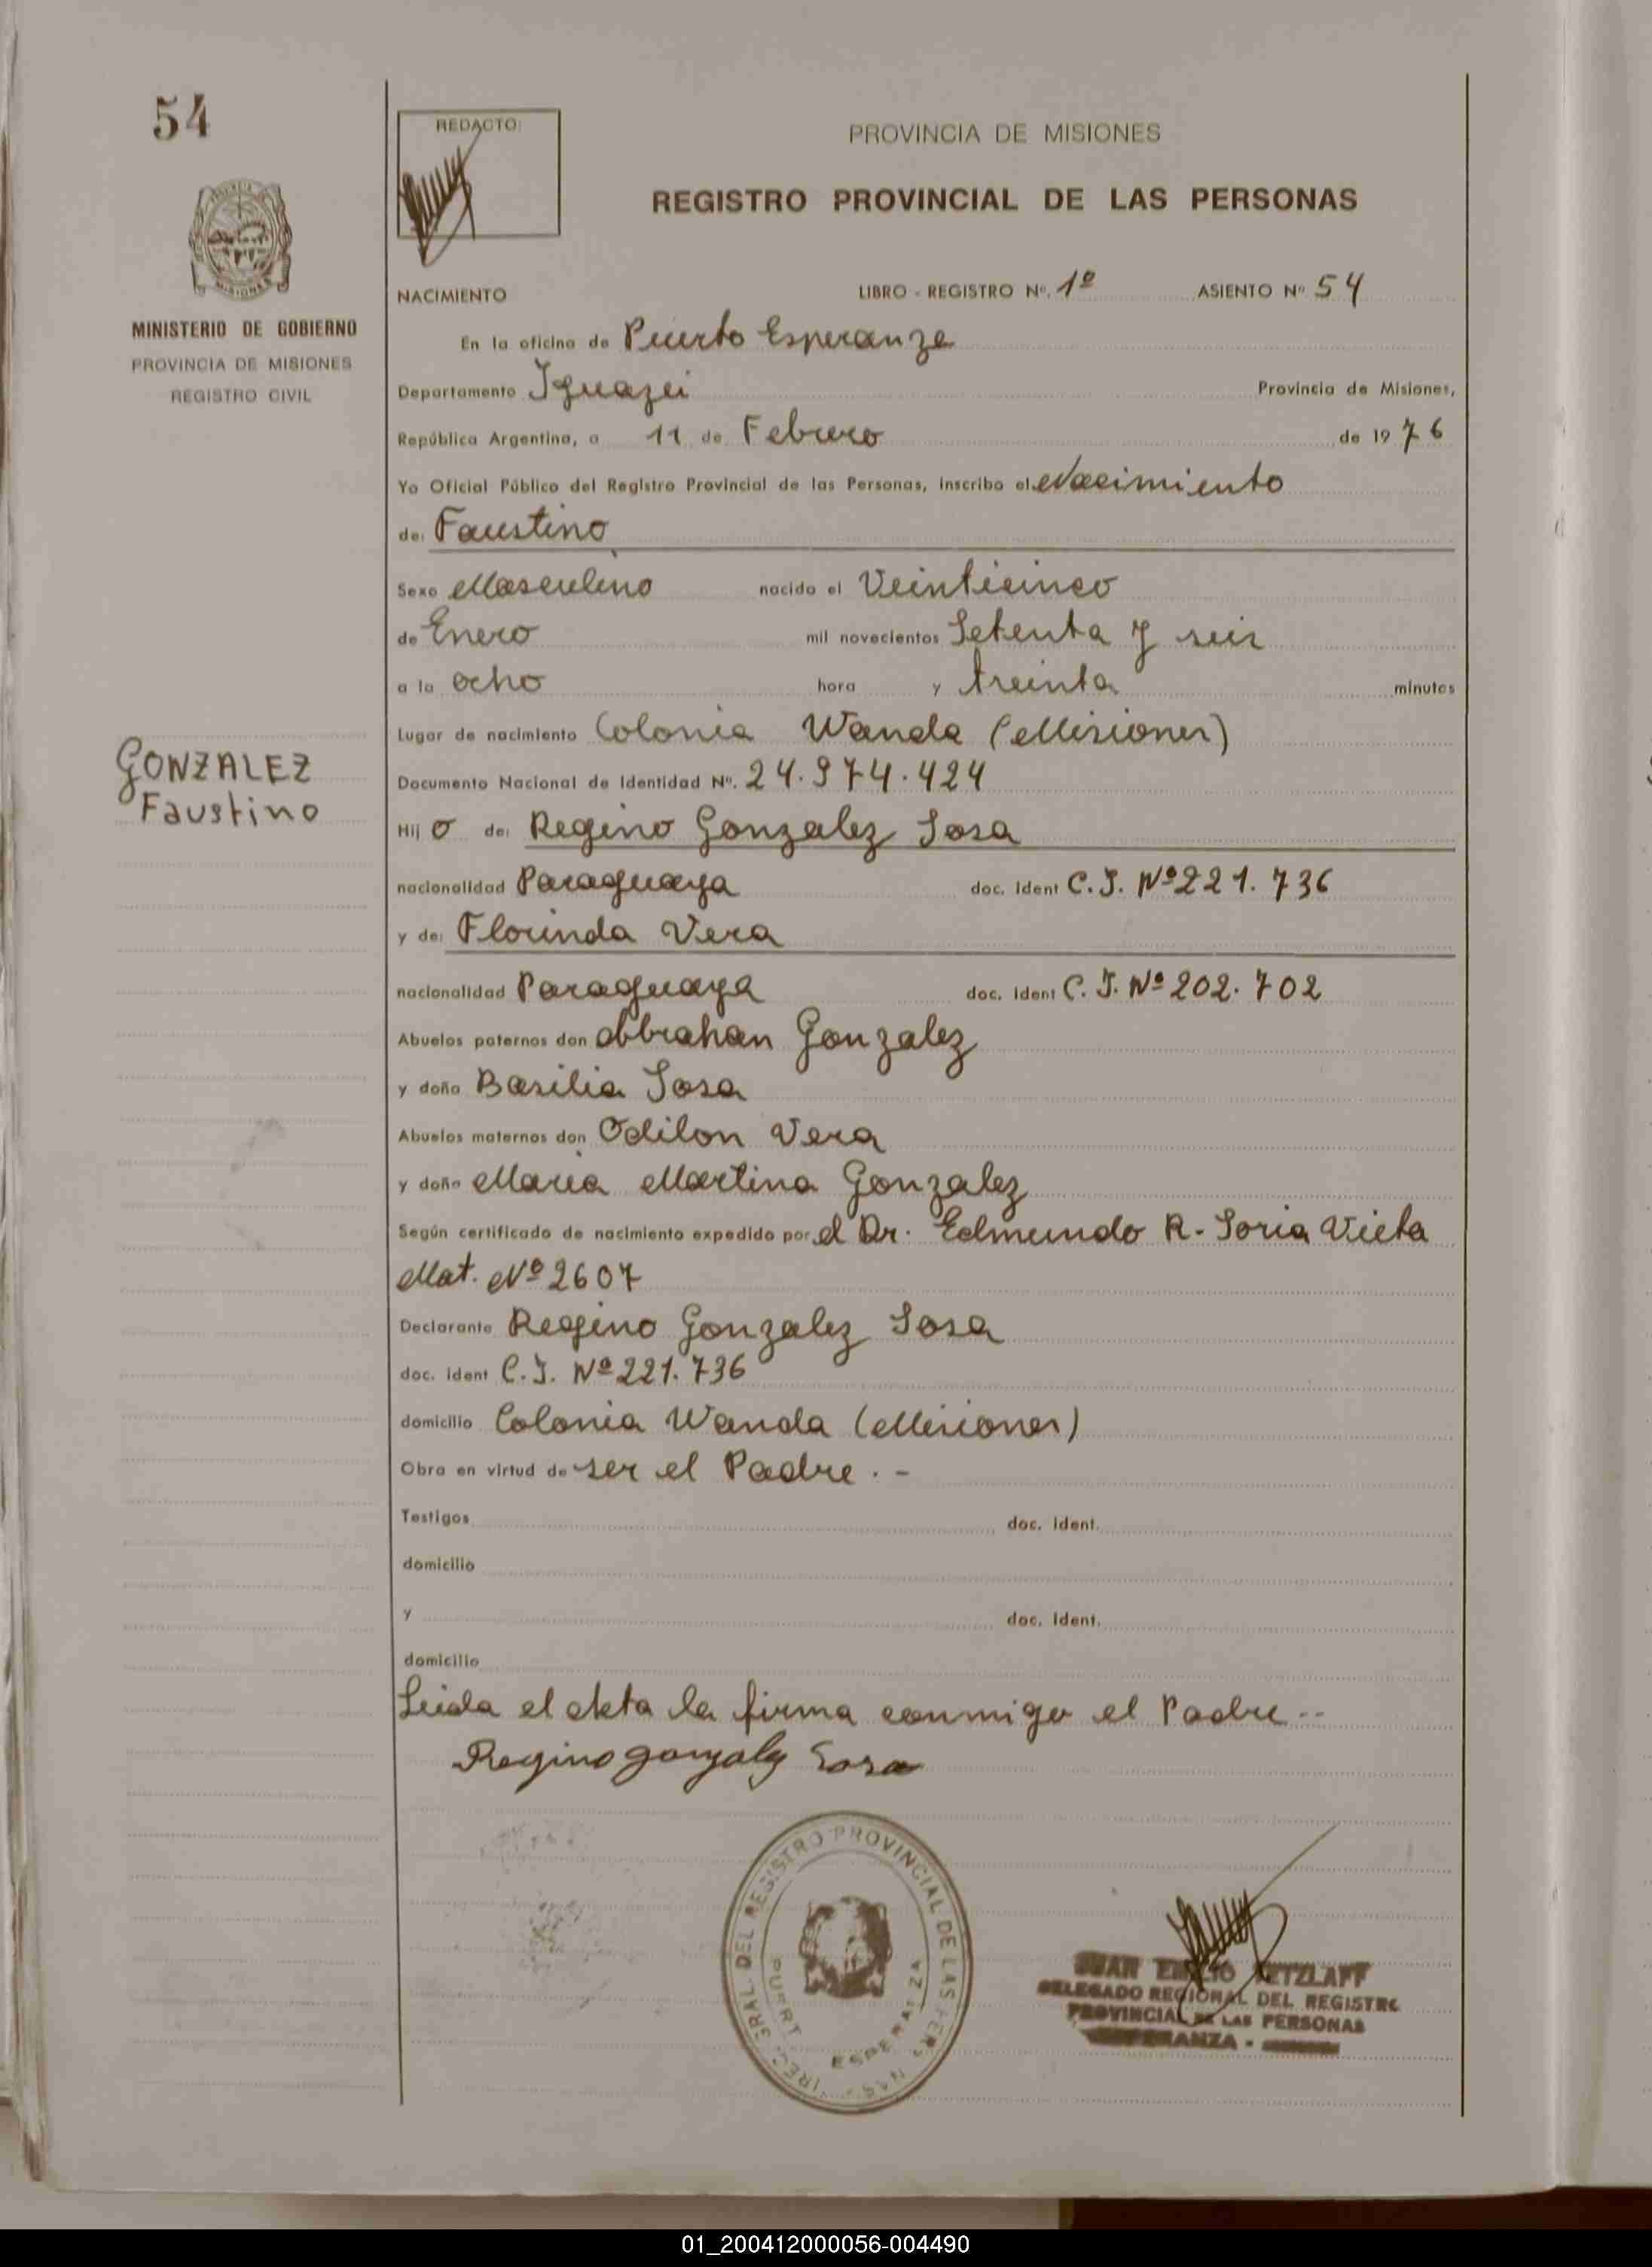 54
REDACTO:
PROVINCIA DE MISIONES
REGISTRO PROVINCIAL DE LAS PERSONAS
MISIONES
MINISTERIO DE GOBIERNO
PROVINCIA DE MISIONES
REGISTRO CIVIL
NACIMIENTO LIBRO - REGISTRO Nº. 1º ASIENTO Nº 54
En la oficina de Puerto Esperanza
Departamento Iguazú Provincia de Misiones,
República Argentina, a 11 de Febrero de 1976
Yo Oficial Público del Registro Provincial de las Personas, inscribo el Nacimiento
de: Faustino
Sexo Masculino nacido el Veinticinco
de Enero mil novecientos Setenta y seis
a la ocho hora y treinta minutos
Lugar de nacimiento Colonia Wanda (Misiones)
GONZALEZ
Faustino
Documento Nacional de Identidad Nº. 24.974.424
Hij o de: Regino Gonzalez Sosa
nacionalidad Paraguaya doc. ident C.I. Nº 221.736
y de: Florinda Vera
nacionalidad Paraguaya doc. ident C.I. Nº 202.702
Abuelos paternos don Abrahan Gonzalez
y doña Basilia Sosa
Abuelos maternos don Odilon Vera
y doña Maria Martina Gonzalez
Según certificado de nacimiento expedido por el Dr. Edmundo R. Soria Vieta
Mat. Nº 2607
Declarante Regino Gonzalez Sosa
doc. ident C.I. Nº 221.736
domicilio Colonia Wanda (Misiones)
Obra en virtud de ser el Padre.-
Testigos doc. ident.
domicilio
y doc. ident.
domicilio
Leida el Acta la firma conmigo el Padre--
Regino Gonzalez Sosa
DEL REGISTRO PROVINCIAL DE LAS PERSONAS
ESPERANZA
JUAN EMILIO RETZLAFF
DELEGADO REGIONAL DEL REGISTRO
PROVINCIAL DE LAS PERSONAS
ESPERANZA -
01_200412000056-004490